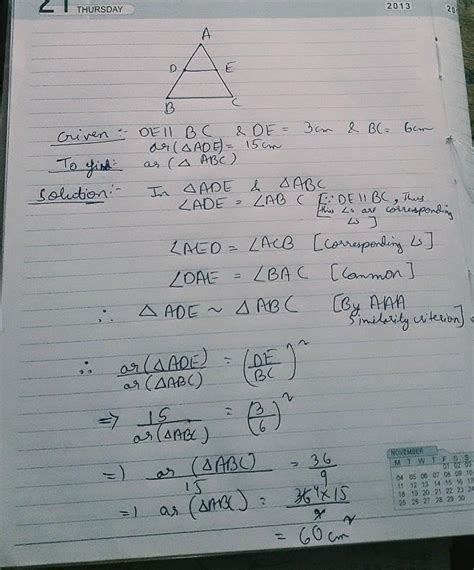 21 THURSDAY 2013
A
D E
B C
Given :- DE || BC & DE = 3cm & BC = 6cm
ar(△ADE) = 15cm
To find:- ar(△ ABC)
Solution:- In △ADE & △ABC
∠ADE = ∠ABC [∵ DE || BC, Thus
this ∠s are corresponding
∠s]
∠AED = ∠ACB [corresponding ∠s]
∠DAE = ∠BAC [Common]
∴ △ ADE ~ △ ABC [By AAA
Similarity criterion]
∴ ar(△ADE)/ar(△ABC) = (DE/BC)²
=> 15/ar(△ABC) = (3/6)²
=> ar(△ABC)/15 = 36/9
=> ar(△ABC) = 36⁴ × 15/9
= 60cm²
NOVEMBER
M T W T F S S
01 02 03
04 05 06 07 08 09 10
11 12 13 14 15 16 17
18 19 20 21 22 23 24
25 26 27 28 29 30